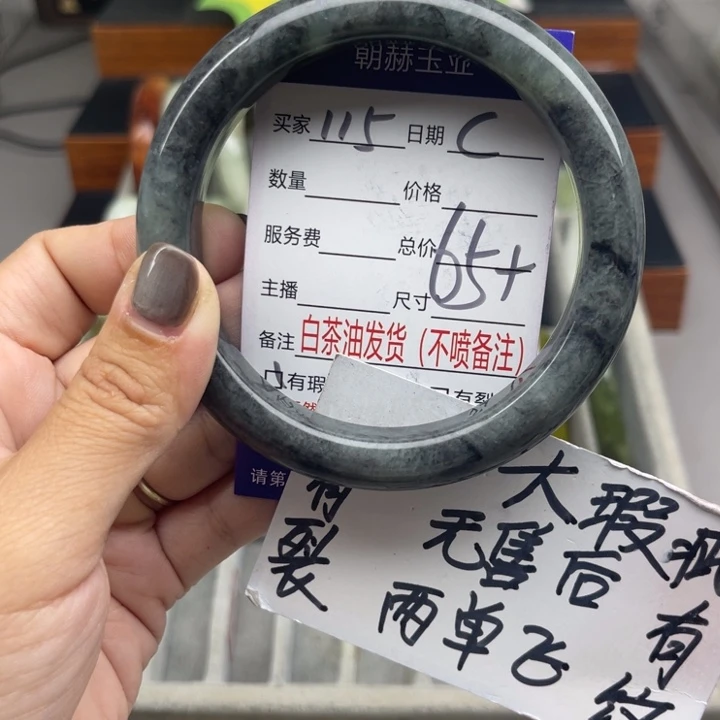 朝赫玉业
买家 115 日期 C
数量 价格
服务费 总价 65+
主播 尺寸
备注 白茶油发货（不喷备注）
有瑕 有裂
请第
有 大瑕疵
裂 无售后 有
两单飞